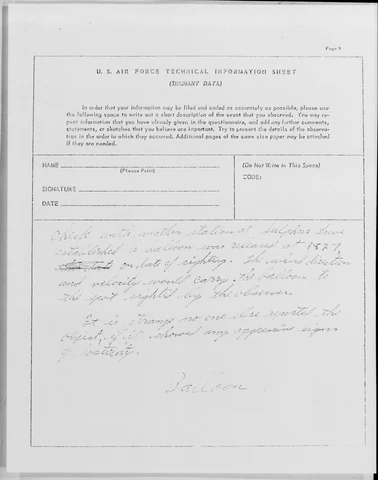 Page 9
U. S. AIR FORCE TECHNICAL INFORMATION SHEET
(SUMMARY DATA)
In order that your information may be filed and coded as accurately as possible, please use
the following space to write out a short description of the event that you observed. You may re-
peat information that you have already given in the questionnaire, and add any further comments,
statements, or sketches that you believe are important. Try to present the details of the observa-
tion in the order in which they occurred. Additional pages of the same size paper may be attached
if they are needed.
NAME
(Please Print)
(Do Not Write in This Space)
CODE:
SIGNATURE
DATE
Check with weather station at
established a balloon was release at 1827,
on date of sighting. The wind direction
and velocity would carry the balloon to
the spot sighted by the observer.
It is strange no one else reported the
object, if it showed any aggressive signs
of
Balloon